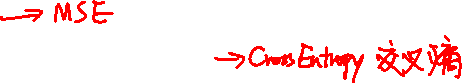 → MSE
→ Cross Entropy 交叉熵